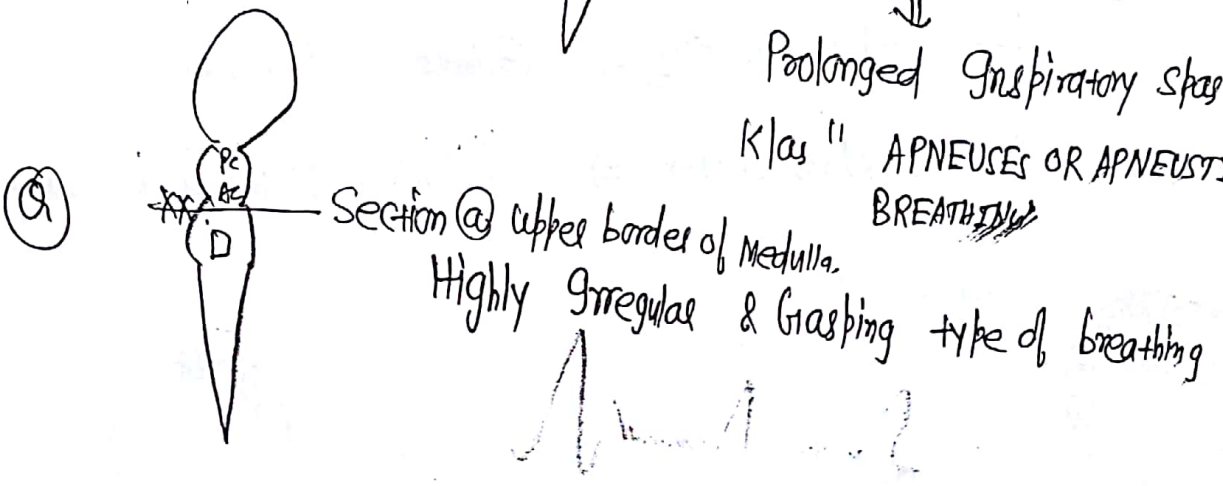 Prolonged Inspiratory spas
K/as " APNEUSES OR APNEUST
BREATHING
Q
PC
AC
D
Section @ upper border of Medulla.
Highly Irregular & Gasping type of breathing